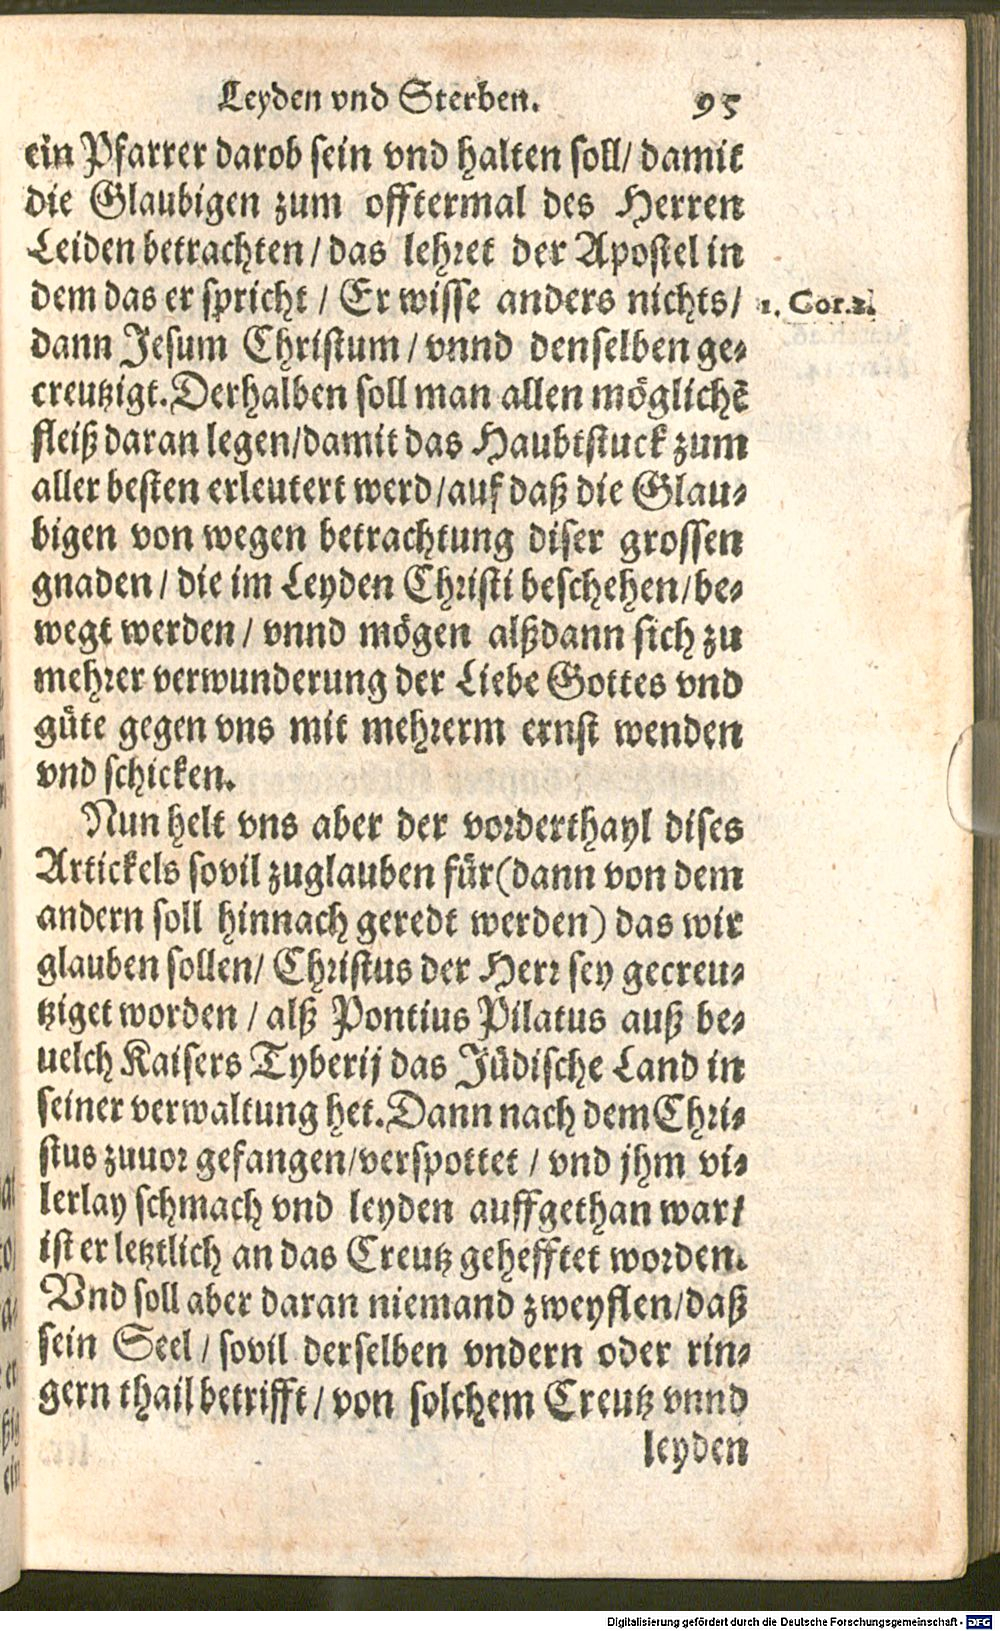 Leyden vnd Sterben. 95
ein Pfarrer darob sein vnd halten soll/ damit
die Glaubigen zum offtermal des Herren
Leiden betrachten / das lehret der Apostel in
dem das er spricht / Er wisse anders nichts/ 1. Cor. 2.
dann Jesum Christum / vnnd denselben ge-
creutzigt. Derhalben soll man allen möglichẽ
fleiß daran legen/damit das Haubtstuck zum
aller besten erleutert werd/auf daß die Glau-
bigen von wegen betrachtung diser grossen
gnaden / die im Leyden Christi beschehen/be-
wegt werden / vnnd mögen alßdann sich zu
mehrer verwunderung der Liebe Gottes vnd
güte gegen vns mit mehrerm ernst wenden
vnd schicken.
Nun helt vns aber der vorderthayl dises
Artickels sovil zuglauben für(dann von dem
andern soll hinnach geredt werden) das wir
glauben sollen/ Christus der Herr sey gecreu-
tziget worden / alß Pontius Pilatus auß be-
uelch Kaisers Tyberij das Jüdische Land in
seiner verwaltung het. Dann nach dem Chri-
stus zuuor gefangen/verspottet / vnd jhm vi-
lerlay schmach vnd leyden auffgethan war/
ist er letztlich an das Creutz gehefftet worden.
Vnd soll aber daran niemand zweyflen/daß
sein Seel / sovil derselben vndern oder rin-
gern thail betrifft / von solchem Creutz vnnd
leyden
Digitalisierung gefördert durch die Deutsche Forschungsgemeinschaft - DFG